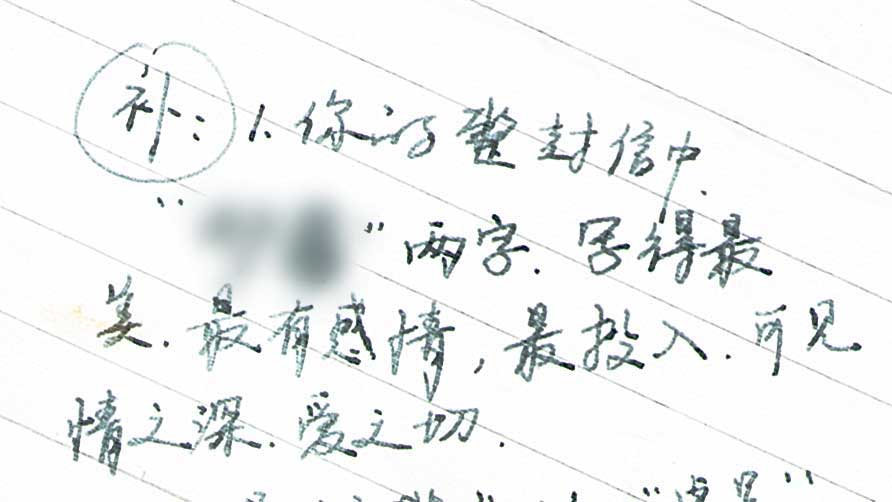 补: 1. 你的整封信中.
“ ”两字. 写得最
美. 最有感情, 最投入. 可见
情之深. 爱之切.